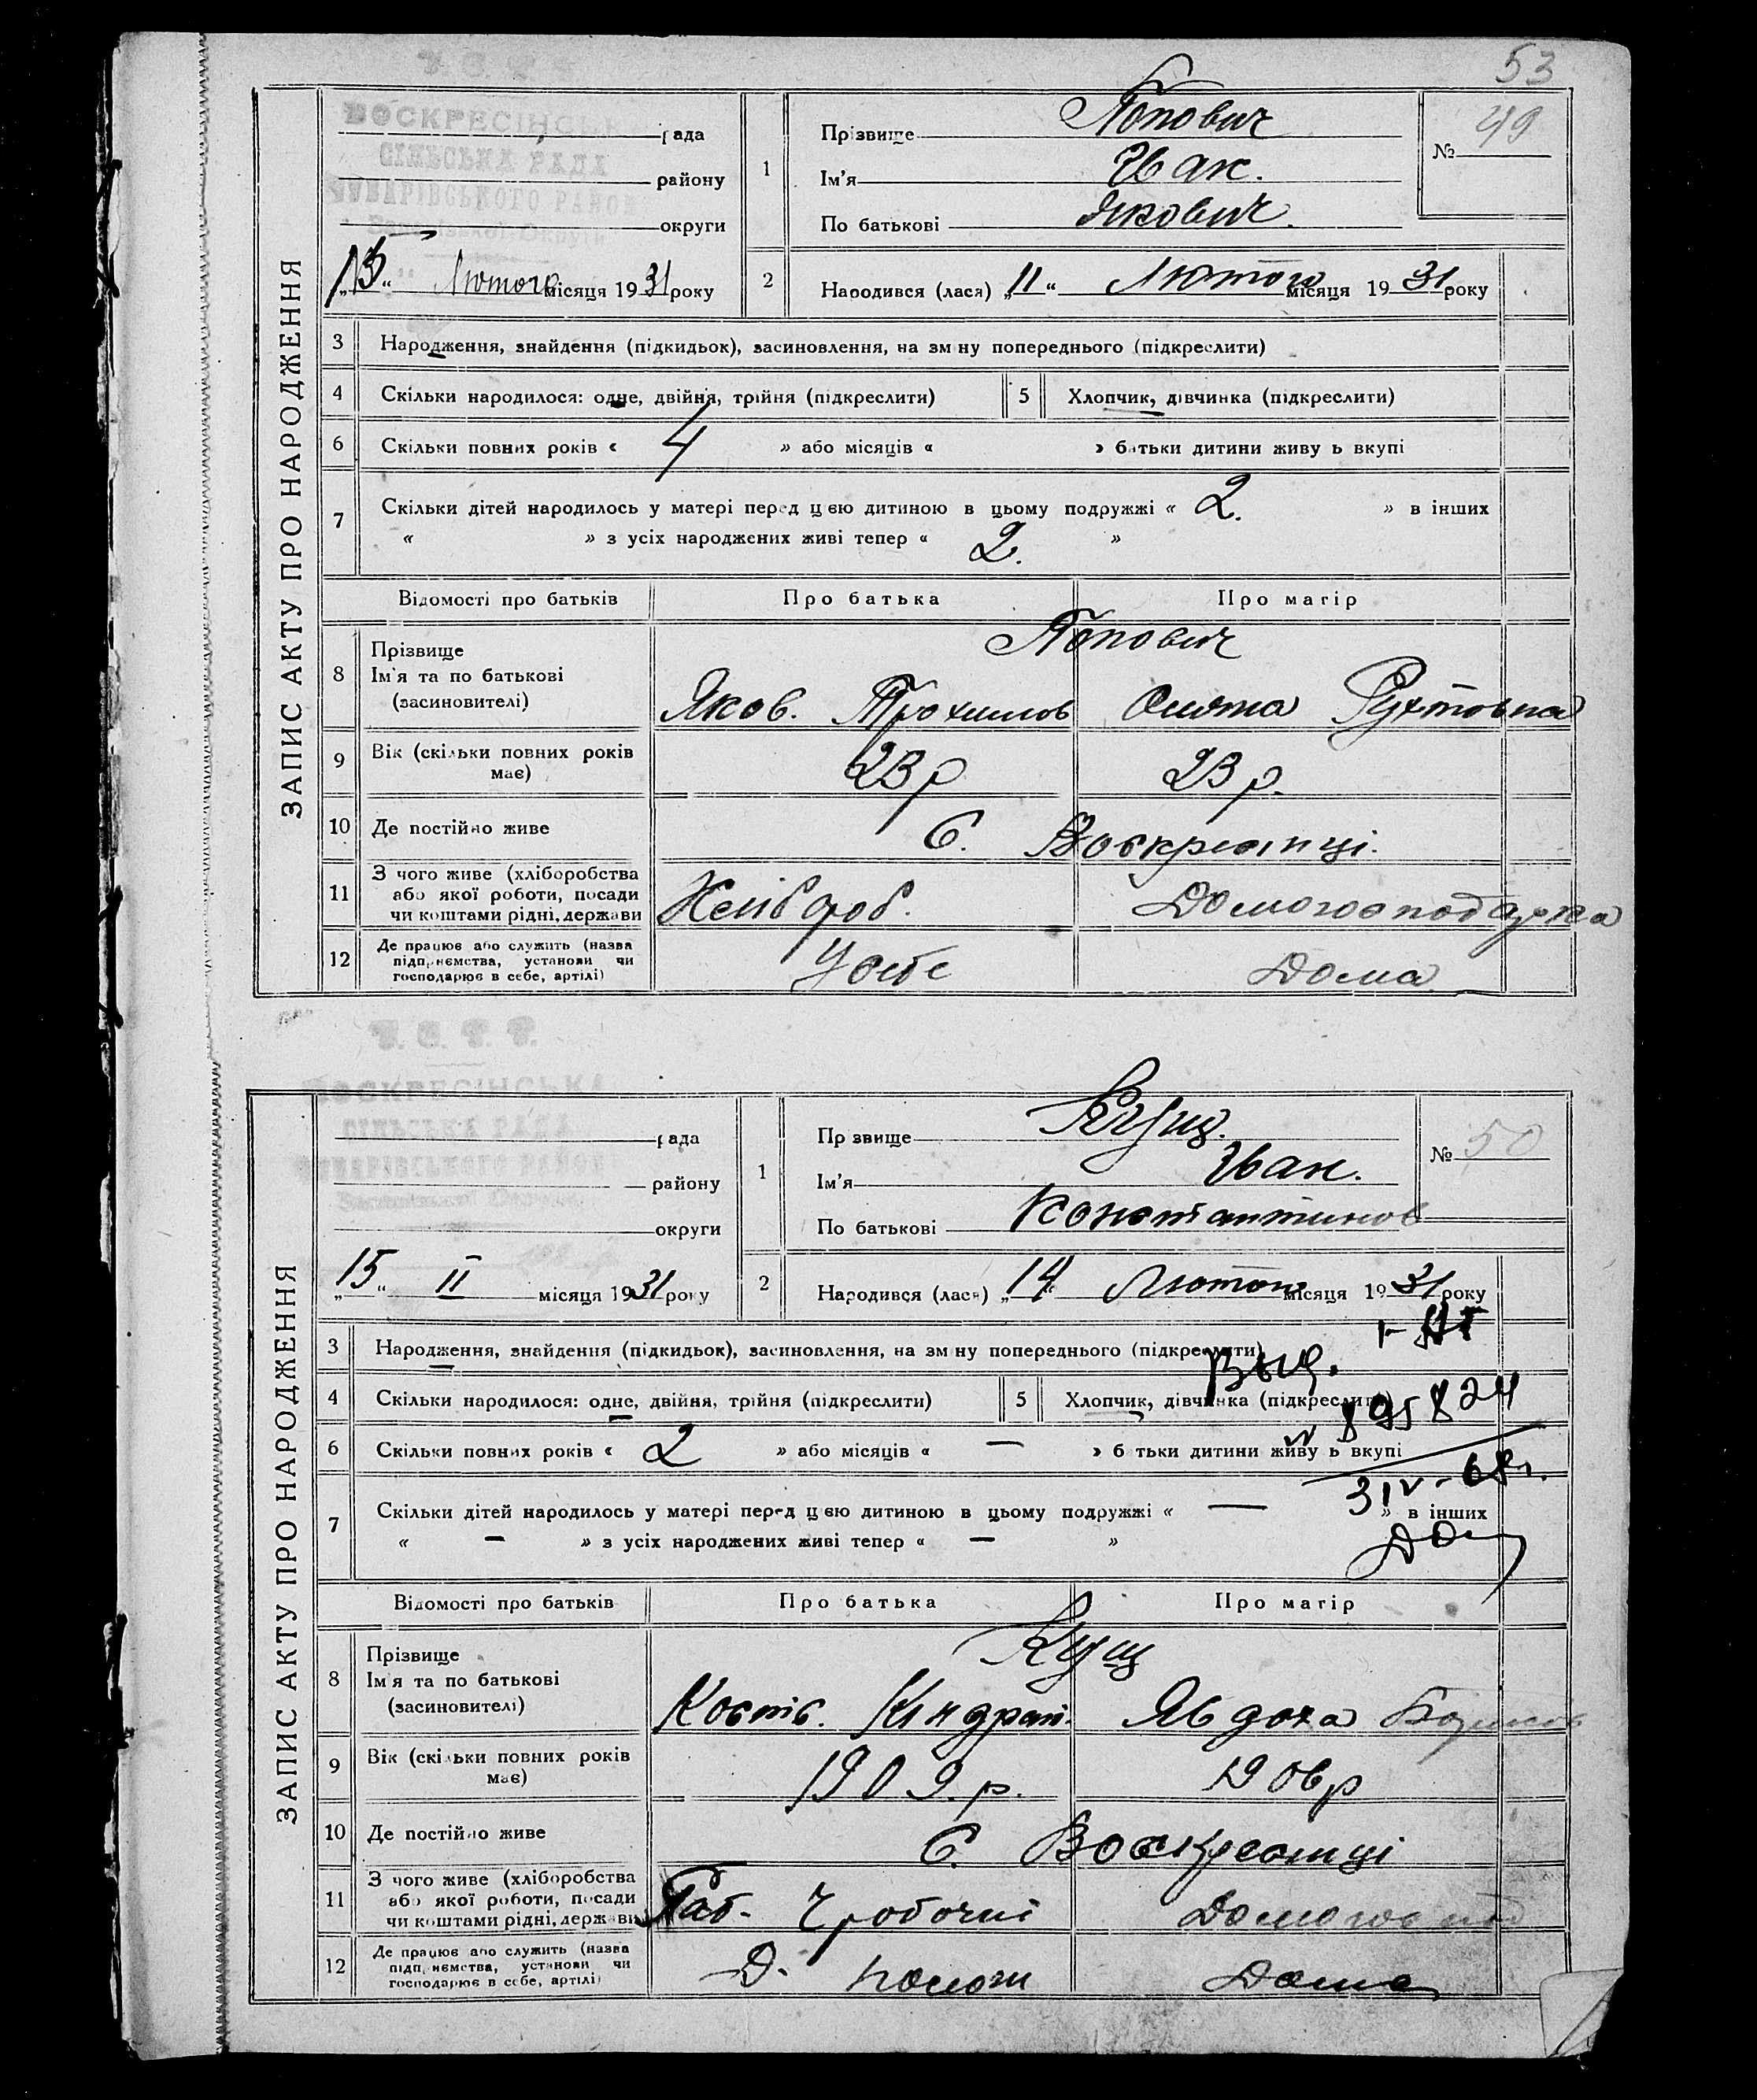 53
ЗАПИС АКТУ ПРО НАРОДЖЕННЯ
ВОСКРЕСІНСЬКА
рада
СІЛЬСЬКА РАДА
району
округи
"13" Лютого місяця 1931 року
1
Прізвище Попович
Ім'я Иван.
По батькові Якович.
№ 49
2
Народився (лася) "11" Лютого місяця 1931 року
3 Народження, знайдення (підкидьок), засиновлення, на зм ну попереднього (підкреслити)
4 Скільки народилося: одне, двійня, трійня (підкреслити)
5 Хлопчик, дівчинка (підкреслити)
6 Скільки повних років « 4 » або місяців « » батьки дитини живу ь вкупі
7 Скільки дітей народилось у матері перед цією дитиною в цьому подружжі « 2. » в інших
« » з усіх народжених живі тепер « 2. »
Відомості про батьків
Про батька
Про матір
8 Прізвище
Ім'я та по батькові
(засиновителі)
Попович
Яков. Трохимов
9 Вік (скільки повних років
має)
23 р
23 р.
10 Де постійно живе
С. Воскресінці.
11 З чого живе (хліборобства
або якої роботи, посади
чи коштами рідні, держави
Хліброб.
Домогосподарка
12 Де працює або служить (назва
підприємства, установи чи
господарює в себе, артілі)
У себе
Дома
У. С. Р. Р.
ВОСКРЕСІНСЬКА
СІЛЬСЬКА РАДА
ЗАПИС АКТУ ПРО НАРОДЖЕННЯ
рада
району
округи
"15" II місяця 1931 року
1
Пр звище Кущ.
Ім'я Иван.
По батькові Константинов
№ 50
2
Народився (лася) "14" Лютого місяця 1931 року
3 Народження, знайдення (підкидьок), засиновлення, на зм ну попереднього (підкреслити)
4 Скільки народилося: одне, двійня, трійня (підкреслити)
5 Хлопчик, дівчинка (підкреслити)
6 Скільки повних років « 2 » або місяців « — » б тьки дитини живу ь вкупі
7 Скільки дітей народилось у матері перед цією дитиною в цьому подружжі « — » в інших
« — » з усіх народжених живі тепер « — »
Відомості про батьків
Про батька
Про матір
8 Прізвище
Ім'я та по батькові
(засиновителі)
Кущ
Кость. Кіндрат.
Явдоха
9 Вік (скі ьки повних років
має)
1909. р.
1906 р
10 Де постійно живе
С. Воскресінці
11 З чого живе (хліборобства
або якої роботи, посади
чи коштами рідні, держави
Домогоспод
12 Де працює або служить (назва
підприємства, установи чи
господарює в себе, артілі)
Дома